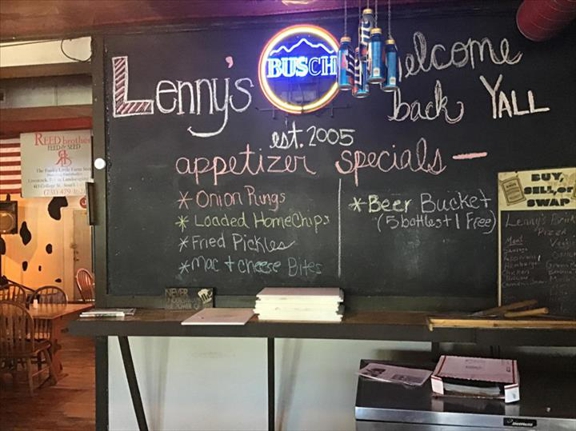 Lenny's
BUSCH
Welcome
back YALL
est. 2005
appetizer specials
* Onion Rings
* Loaded HomeChips
* Fried Pickles
* Mac + cheese Bites
* Beer Bucket
(5 bottles + 1 Free)
REED brothers
FEED & SEED
BUY,
SELL, OR
SWAP
Lenny's
Pizza
NEVER